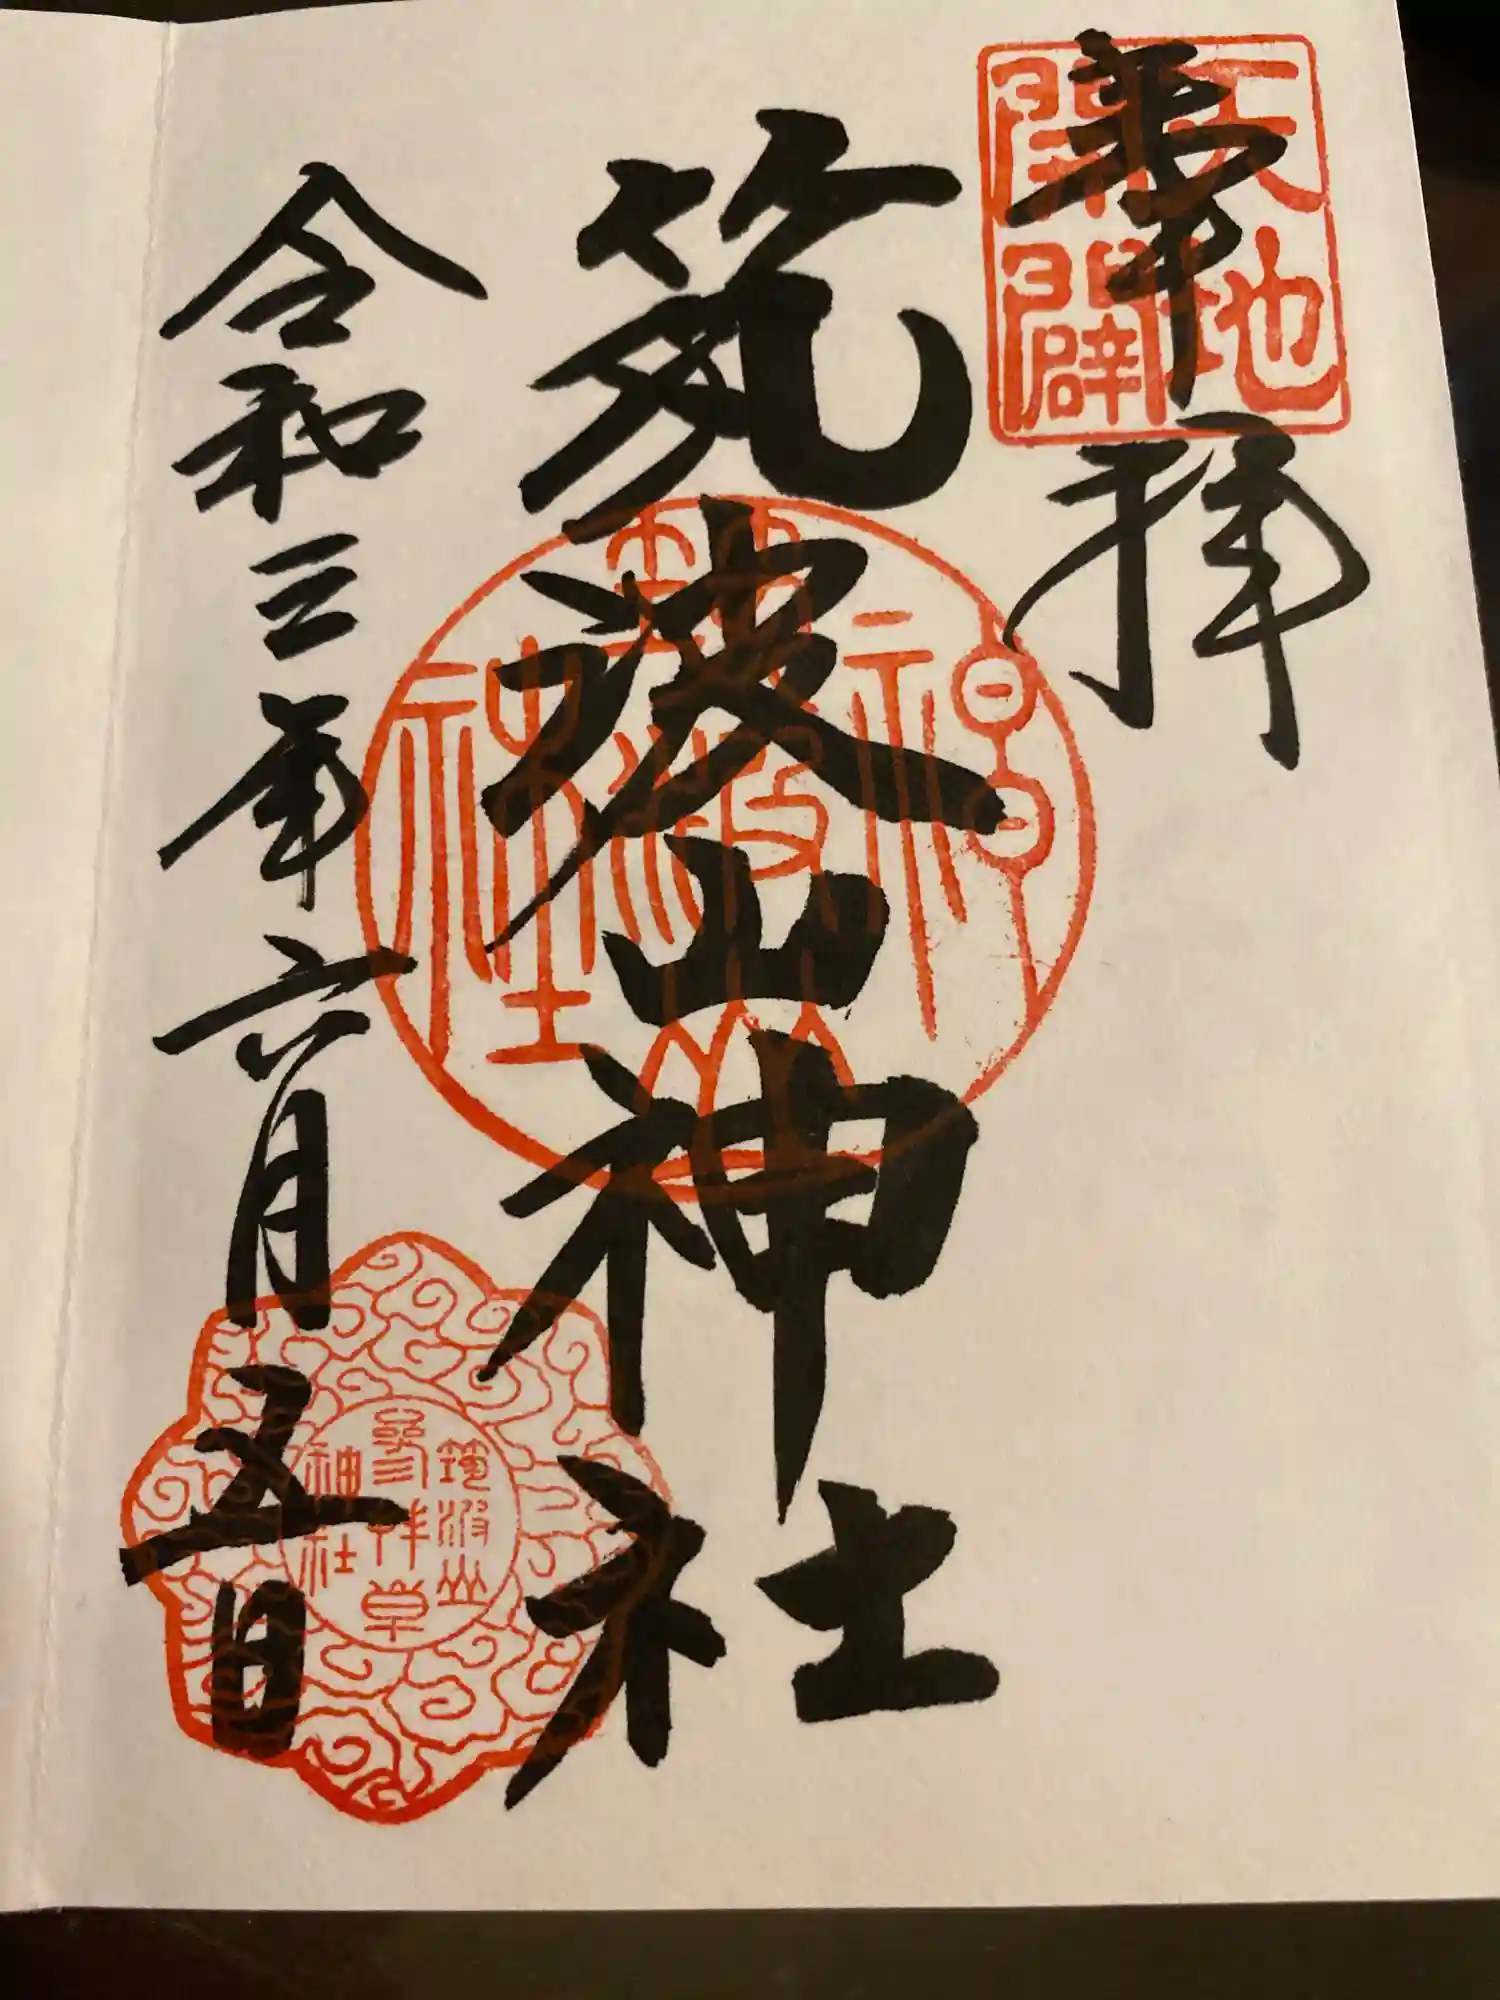 奉拝
天地
開闢
筑波山神社
令和三年六月五日
筑波山
神社